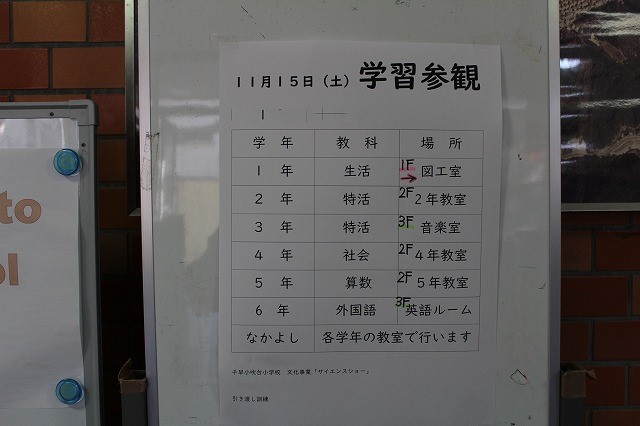 11月15日（土） 学習参観
1
学 年 教 科 場 所
1 年 生活 1F → 図工室
2 年 特活 2F 2年教室
3 年 特活 3F 音楽室
4 年 社会 2F 4年教室
5 年 算数 2F 5年教室
6 年 外国語 3F 英語ルーム
なかよし 各学年の教室で行います
千早小吹台小学校 文化事業「サイエンスショー」
引き渡し訓練
to
ol